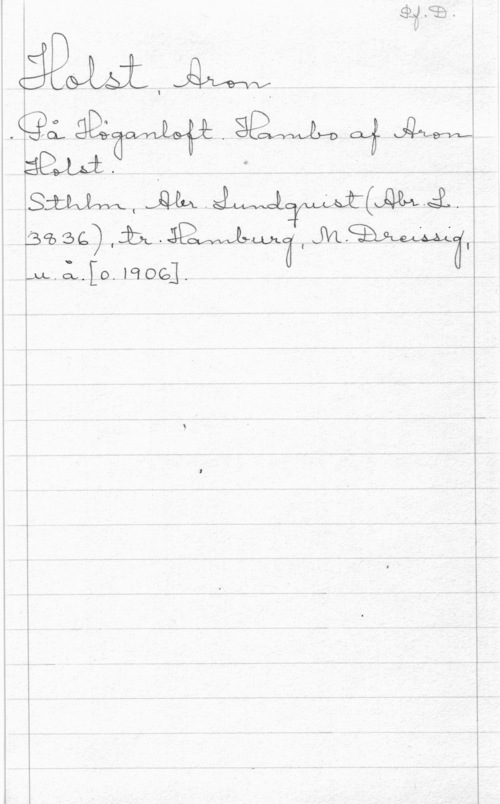 Pf. D.
Holst, Aron
På Höganloft. Hambo af Aron
Holst.
Sthlm, Abr Lundquist (Abr. L.
3836), tr. Hamburg, M. Dreissig,
u. å. [o. 1906].